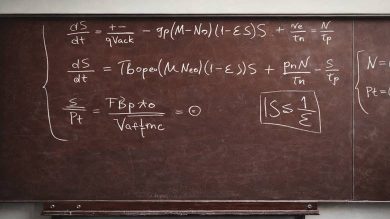 dS/dt = +-/qVack - gp(M-No)(1-ES)S + ve/τn = N/τp
dS/dt = τBope0(M Neo)(1-ES)S + pnN/τn - S/τp
S/Pt = FBp*o/Vaftmc = ⊙
|S≤ 1/ε
N =
Pt =